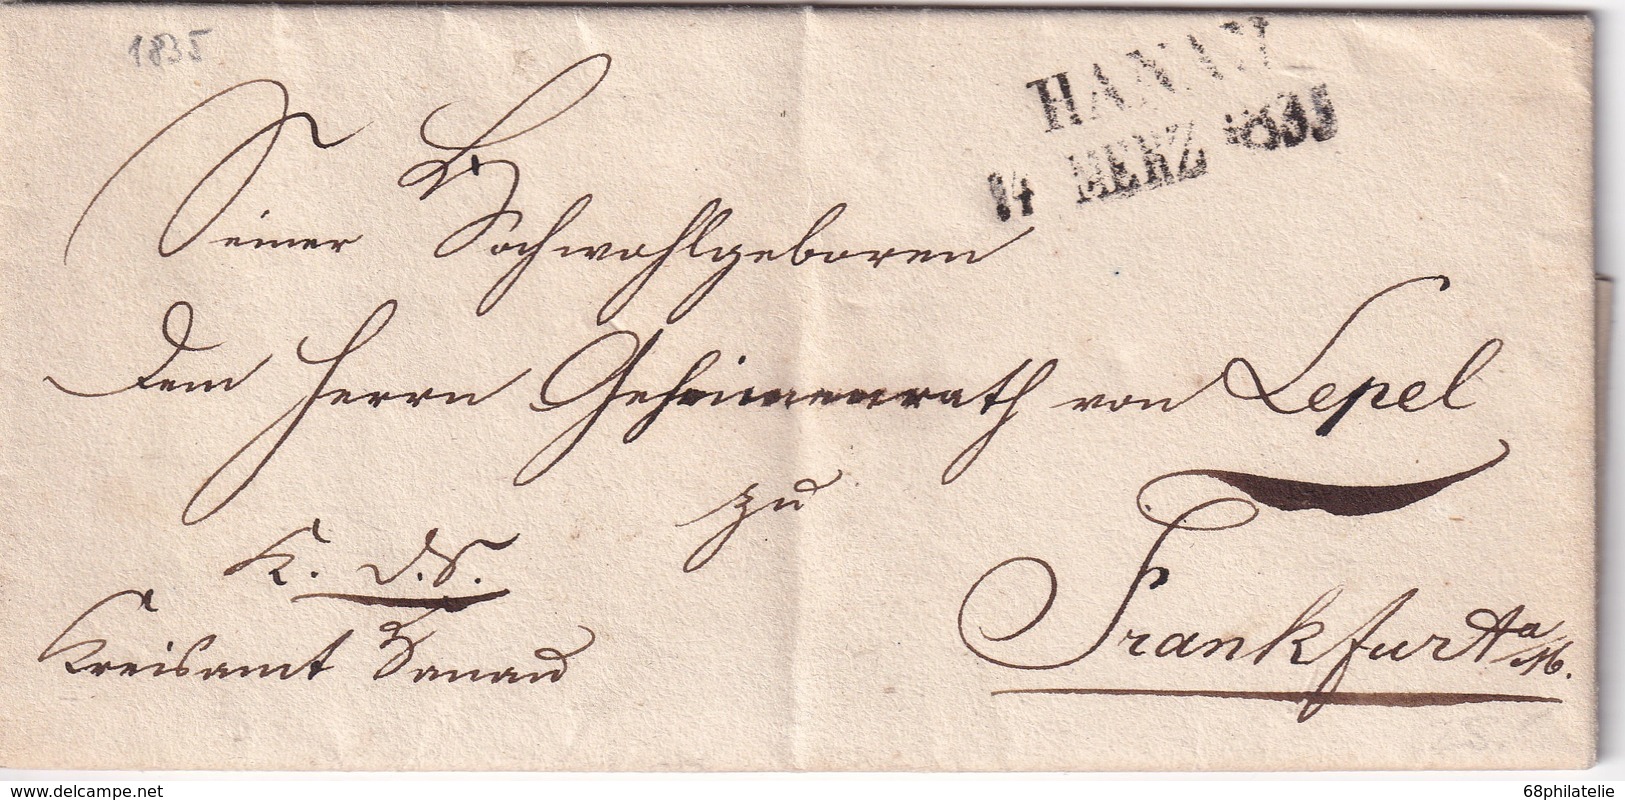 1835
HANAU
14 MERZ 1835
Seiner Hochwohlgeboren
Dem Herrn Geheimenrath von Lepel
zu
Frankfurt a/M.
K. D. S.
Kreisamt Hanau
www.delcampe.net
68philatelie